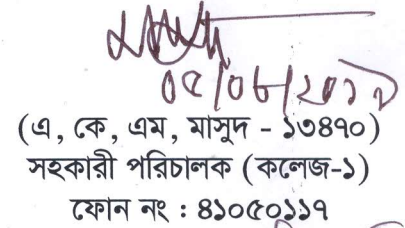 ০৫/০৮/২০১৯
(এ, কে, এম, মাসুদ - ১৩৪৭০)
সহকারী পরিচালক (কলেজ-১)
ফোন নং : ৪১০৫০১১৭